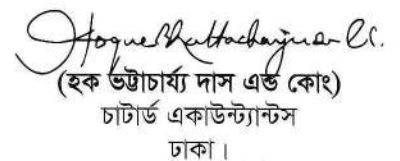 Hoque Bhattacharjee
(হক ভট্টাচার্য্য দাস এন্ড কোং)
চাটার্ড একাউন্ট্যান্টস
ঢাকা।